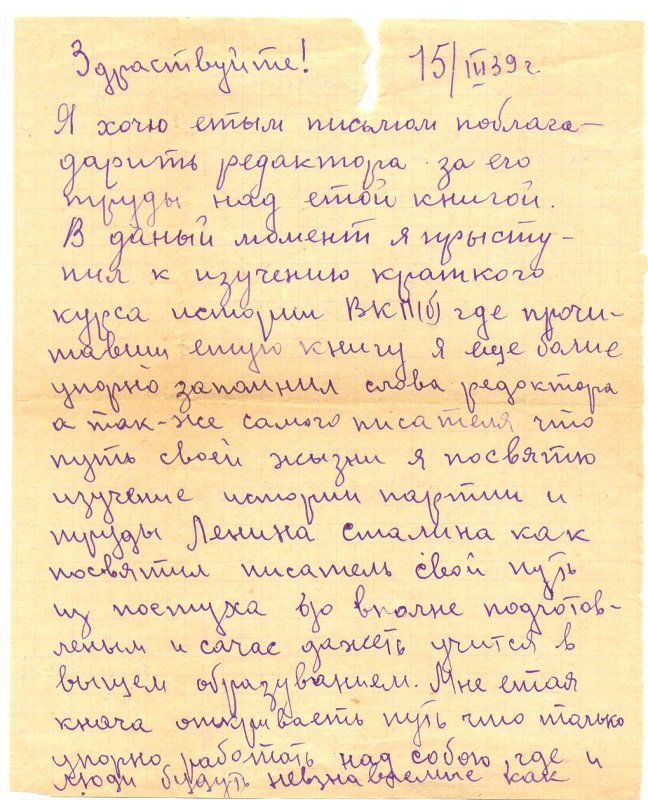 Здраствуйте! 15/III 39 г.
Я хочю етым письмом поблага-
дарить редактора за его
труды над етой книгой.
В даный момент я прысту-
пил к изучению краткого
курса истории ВКП(б) где прочи-
тавши етую книгу я еще более
упорно запомнил слова редоктора
а так-же самого писателя что
путь своей жызни я посвятю
изучение истории партии и
труды Ленина Сталина как
посвятил писатель свой путь
из постуха до вполне подготов-
леным и сачас дажеть учится в
выщем образуванием. Мне етая
книга открываеть путь что только
упорно работать над собою где и
люди будуть невзнаваемые как